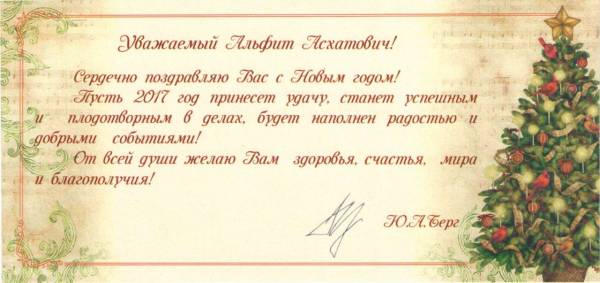 Уважаемый Альфит Асхатович!
Сердечно поздравляю Вас с Новым годом!
Пусть 2017 год принесет удачу, станет успешным
и плодотворным в делах, будет наполнен радостью и
добрыми событиями!
От всей души желаю Вам здоровья, счастья, мира
и благополучия!
Ю.А.Берг